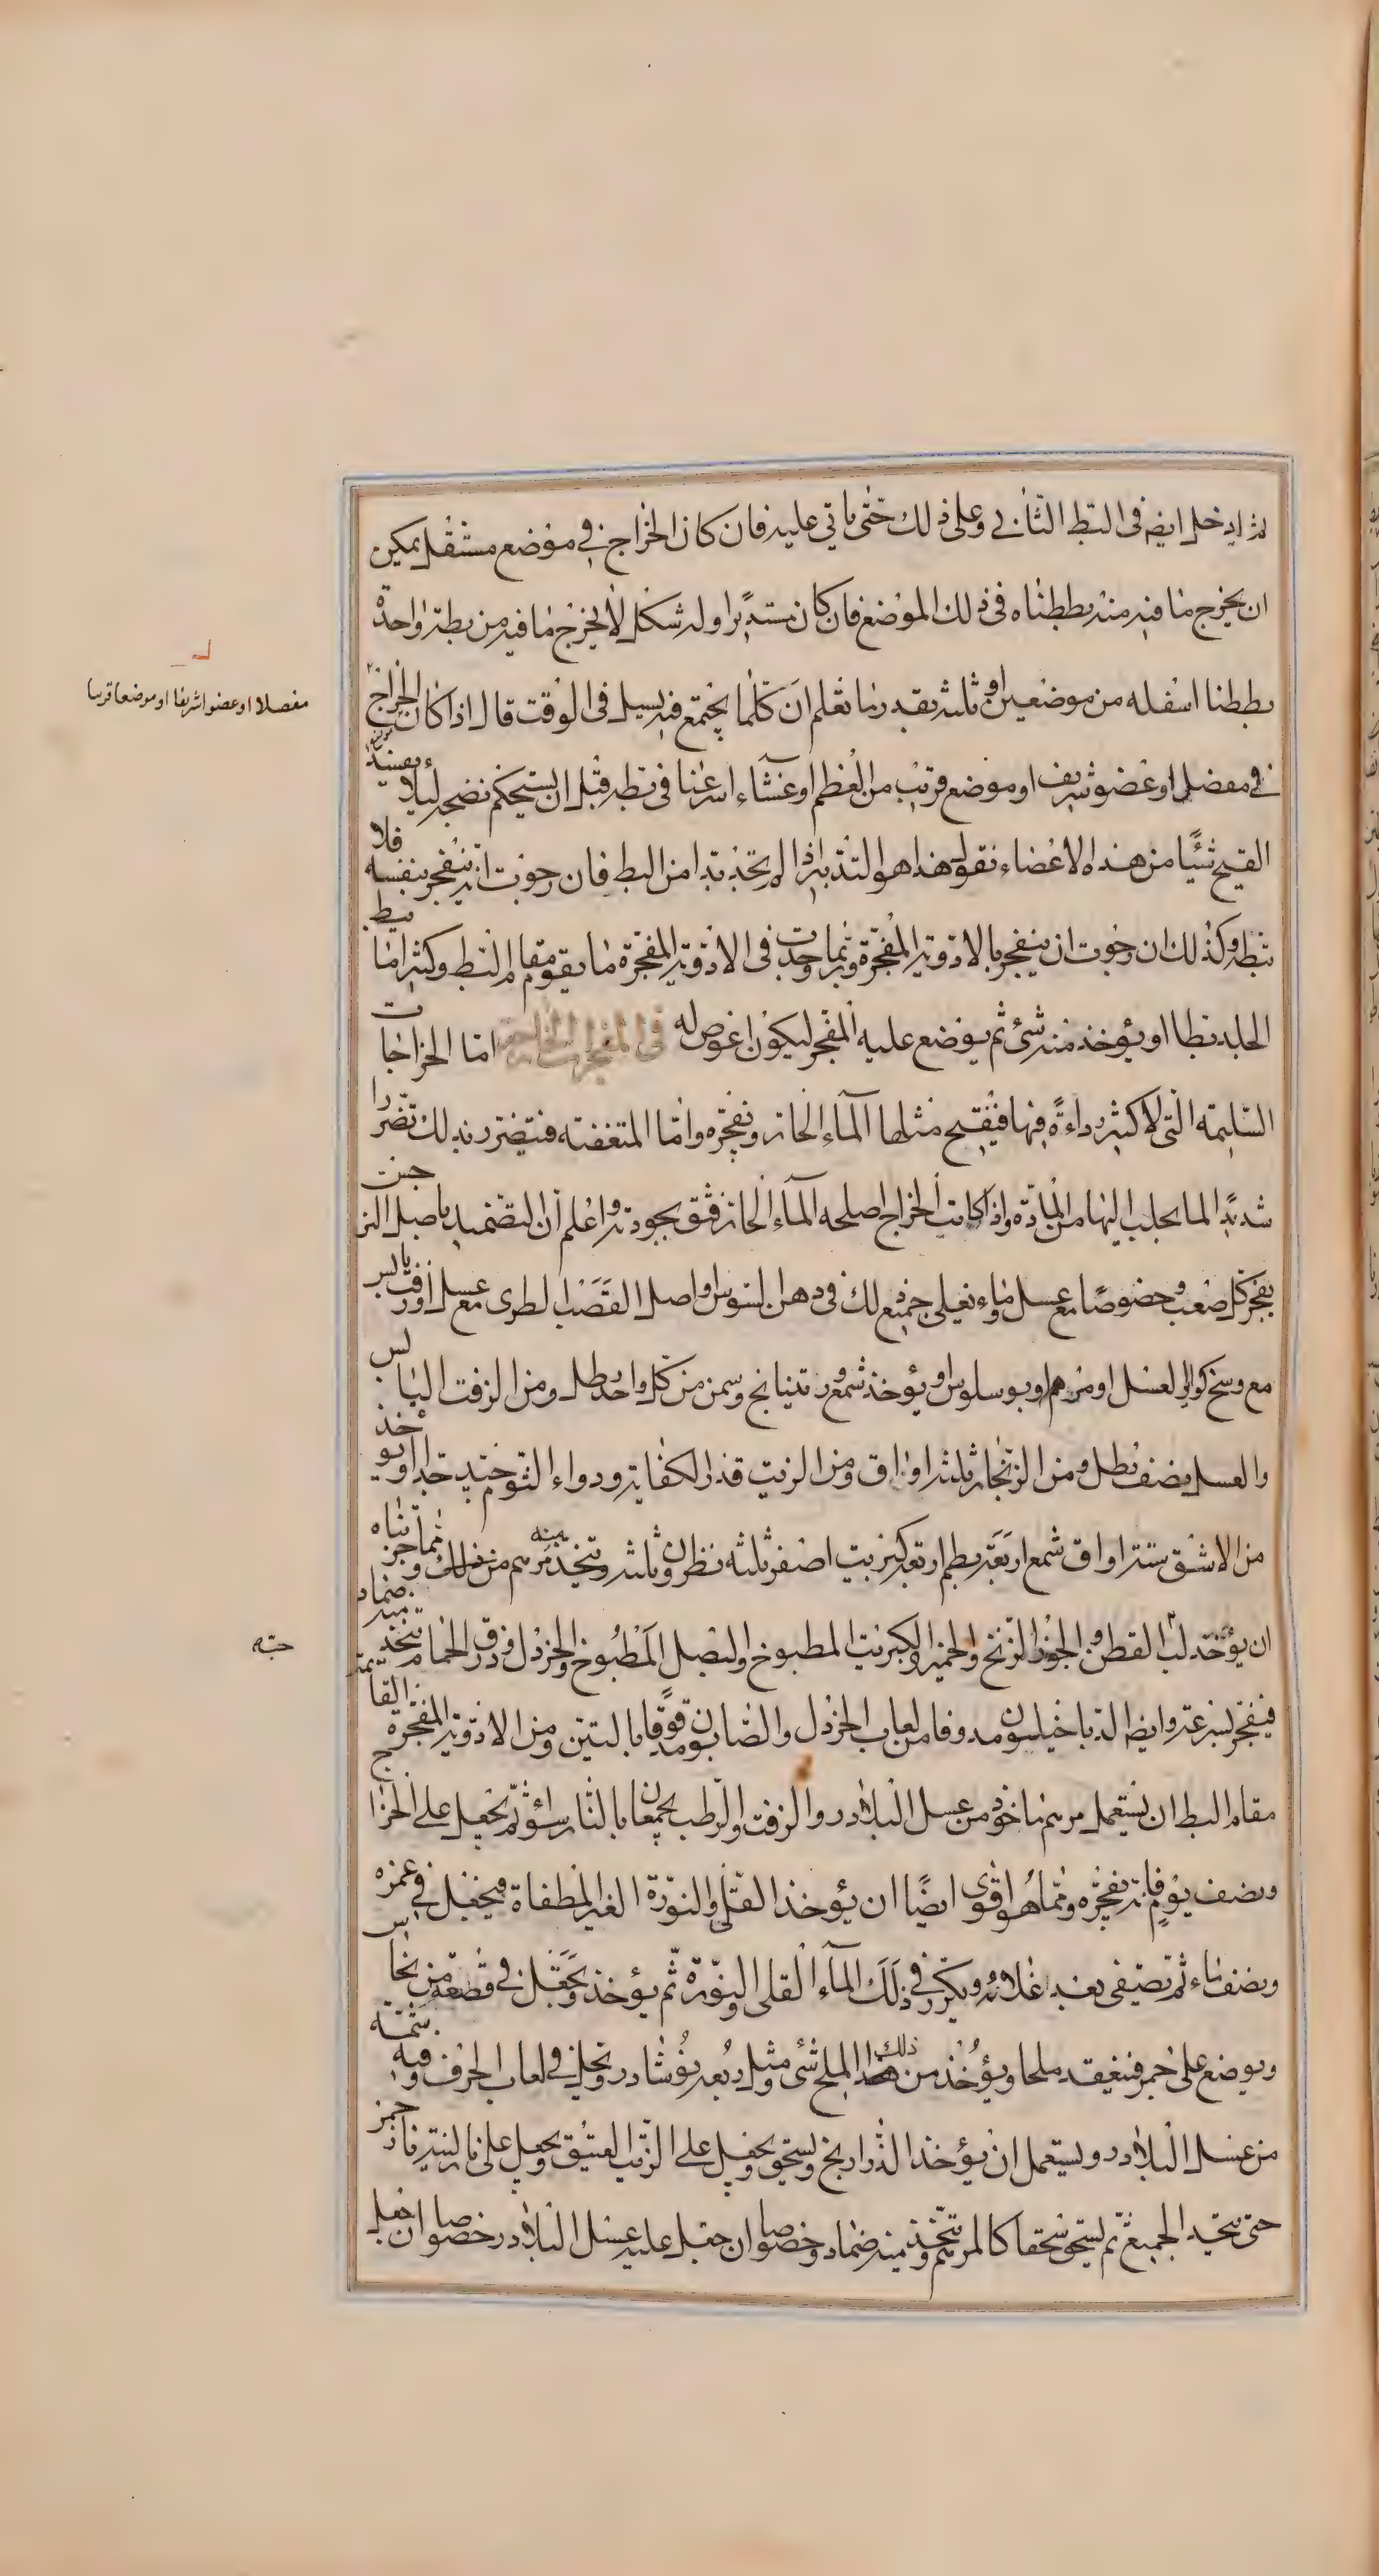 ثم ادخل ايضا فى البط الثانى وعلى ذلك حتى ياتى عليه فان كان الخراج فى موضع مستقل يمكن
ان يخرج ما فيه منه بططناه فى ذلك الموضع فان كان مستديرا وله شكل لا يخرج ما فيه من بطة واحدة
بططنا اسفله من موضعين او ثلثة بقدر ما تعلم ان كلما يجتمع فيه يسيل فى الوقت قال اذا كان الخراج
فى مفصل او عضو شريف او موضع قريب من العظم او غشاء اسرعنا فى بطه قبل ان يستحكم نضجه ليلا يفسد
القيح شيئا من هذه الاعضاء نقول هذا هو التدبير اذا لم تجد بدا من البط فان رجوت انه ينفجر بنفسه فلا
تبطه وكذلك ان رجوت ان ينفجر بالادوية المفجرة وربما وجدت فى الادوية المفجرة ما يقوم مقام البط وكثيرا ما يبط
الجلد بطا او يؤخذ منه شئ ثم يوضع عليه المفجر ليكون اغوص له فى المفجرات الخارجة اما الخراجات
السليمة التى لا كثير رداءة فيها فيقيح مثلها الماء الحار ونفجره واما المتعفنة فيتضرر بذلك تضررا
شديدا لما يجلب اليها من المادة واذا كانت الخراج اصلحه الماء الحار فثق بجودته واعلم ان التضميد باصل النرجس
يفجر كل صعب وخصوصا مع عسل وماء يغلى جميع ذلك فى دهن السوسن واصل القصب الطرى مع عسل او زفت يابس
مع وسخ كواير العسل او مرهم او بوسلوس او يؤخذ شمع وريتيانج وسمن من كل واحد رطل ومن الزفت اليابس
والعسل نصف رطل ومن الزنجار ثلثة اواق ومن الزيت قدر الكفاية ودواء الثوم جيد جدا او يؤخذ
من الاشق ستة اواق شمع اربعة بطم اربعة كبريت اصفر ثلثة نطرون ثلثة ويتخذ منه مرهم من ذلك ومما جربناه
ان يؤخذ لب القطن والجوز الزنخ والخمير والكبرنب المطبوخ والبصل المطبوخ والخردل وذرق الحمام يتخذ منه ضماد
فيفجر بسرعة وايضا الدياخيلون مدوفا من لعاب الخردل والصابون مدقوقا بالتين ومن الادوية المفجرة القايمة
مقام البط ان يستعمل مرهم ماخوذ من عسل البلادر والزفت والرطب يجمعان بالنار سواء ثم يجعل على الخراج
ونصف يوم فانه يفجره ومما هو اقوى ايضا ان يؤخذ القلى والنورة الغير المطفاة ويجعل فى غمره
ونصف ماء ثم يصفى بعد اغلائه ويكرر فى ذلك الماء القلى والنورة ثم يؤخذ ويجعل فى قصعة من نحاس
ويوضع على جمر فينعقد ملحا ويؤخذ من ذلك الملح شئ ومثل ربعه نوشادر ويحل فى لعاب الحرف وفيه شمة
من عسل البلادر ويستعمل ان يؤخذ الذراريح ويسحق ويجعل على الزيت العتيق ويجعل على نار لينة نار جمر
حتى يتحد الجميع ثم يسحق سحقا كالمرهم ويتخذ منه ضماد وخصوصا ان جعل عليه عسل البلادر خصوصا ان جعل
مفصلا او عضوا شريفا او موضعا قريبا
حبه